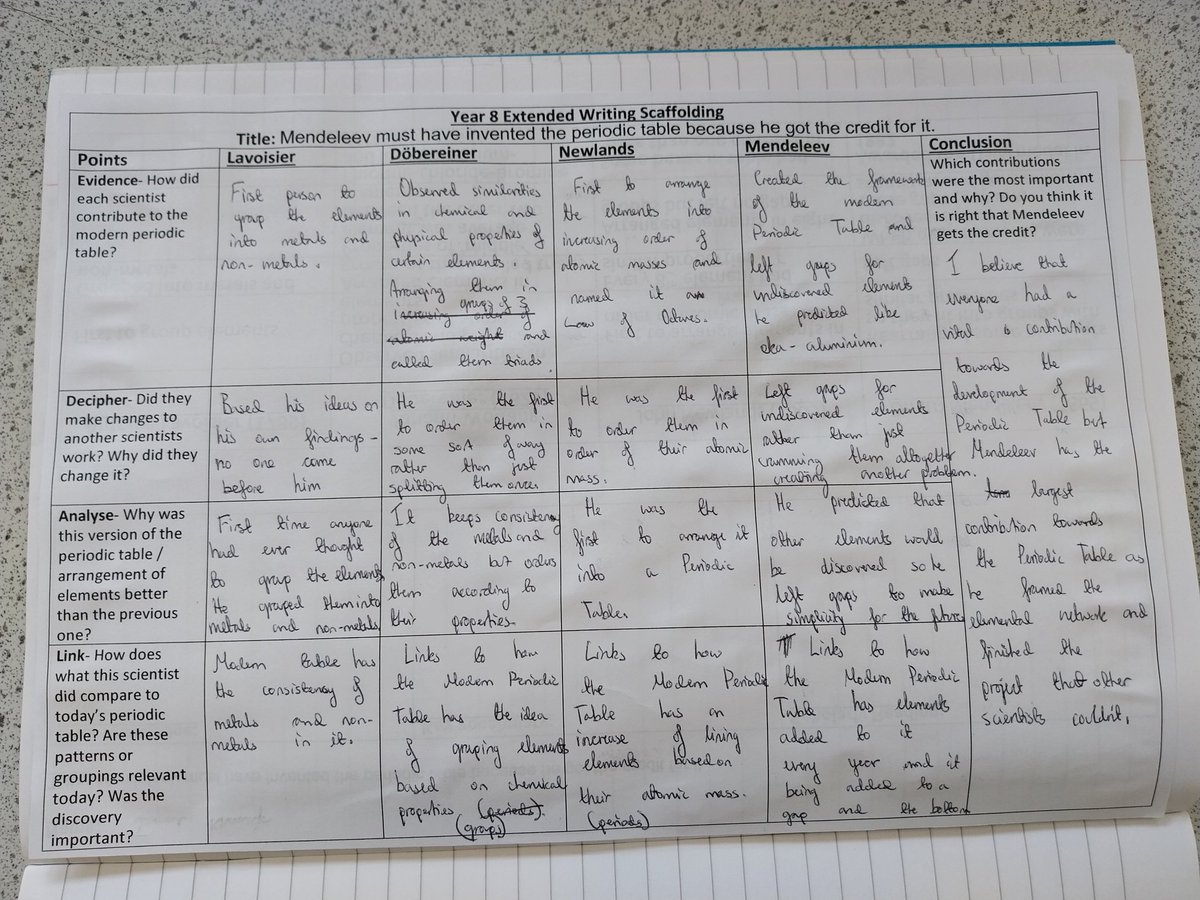 Year 8 Extended Writing Scaffolding
Title: Mendeleev must have invented the periodic table because he got the credit for it.
Points
Lavoisier
Döbereiner
Newlands
Mendeleev
Conclusion
Evidence- How did
each scientist
contribute to the
modern periodic
table?
First person to
group the elements
into metals and
non-metals.
Observed similarities
in chemical and
physical properties of
certain elements.
Arranging them in
groups of 3
increasing order of
atomic weight and
called them triads.
First to arrange
the elements into
increasing order of
atomic masses and
named it
Law of Octaves.
Created the framework
of the modern
Periodic Table and
left gaps for
undiscovered elements
he predicted like
eka-aluminium.
Which contributions
were the most important
and why? Do you think it
is right that Mendeleev
gets the credit?
I believe that
everyone had a
vital contribution
towards the
development of the
Periodic Table but
Mendeleev has the
largest
contribution towards
the Periodic Table as
he framed the
elemental network and
finished the
project that other
scientists couldn't.
Decipher- Did they
make changes to
another scientists
work? Why did they
change it?
Based his ideas on
his own findings -
no one came
before him
He was the first
to order them in
some sort of way
rather than just
splitting them over.
He was the first
to order them in
order of their atomic
mass.
Left gaps for
undiscovered elements
rather than just
cramming them altogether
creating another problem.
Analyse- Why was
this version of the
periodic table /
arrangement of
elements better
than the previous
one?
First time anyone
had ever thought
to group the elements
He grouped them into
metals and non-metals
It keeps consistency
of the metals and
non-metals but orders
them according to
their properties.
He was the
first to arrange it
into a Periodic
Table.
He predicted that
other elements would
be discovered so he
left gaps to make
simplicity for the future
Link- How does
what this scientist
did compare to
today's periodic
table? Are these
patterns or
groupings relevant
today? Was the
discovery
important?
Modern table has
the consistency of
metals and non-
metals in it.
Links to how
the Modern Periodic
Table has the idea
of grouping elements
based on chemical
properties (periods).
(groups)
Links to how
the Modern Periodic
Table has an
increase of lining
elements based on
their atomic mass.
(periods)
Links to how
the Modern Periodic
Table has elements
added to it
every year and it
being added to a
gap and the bottom